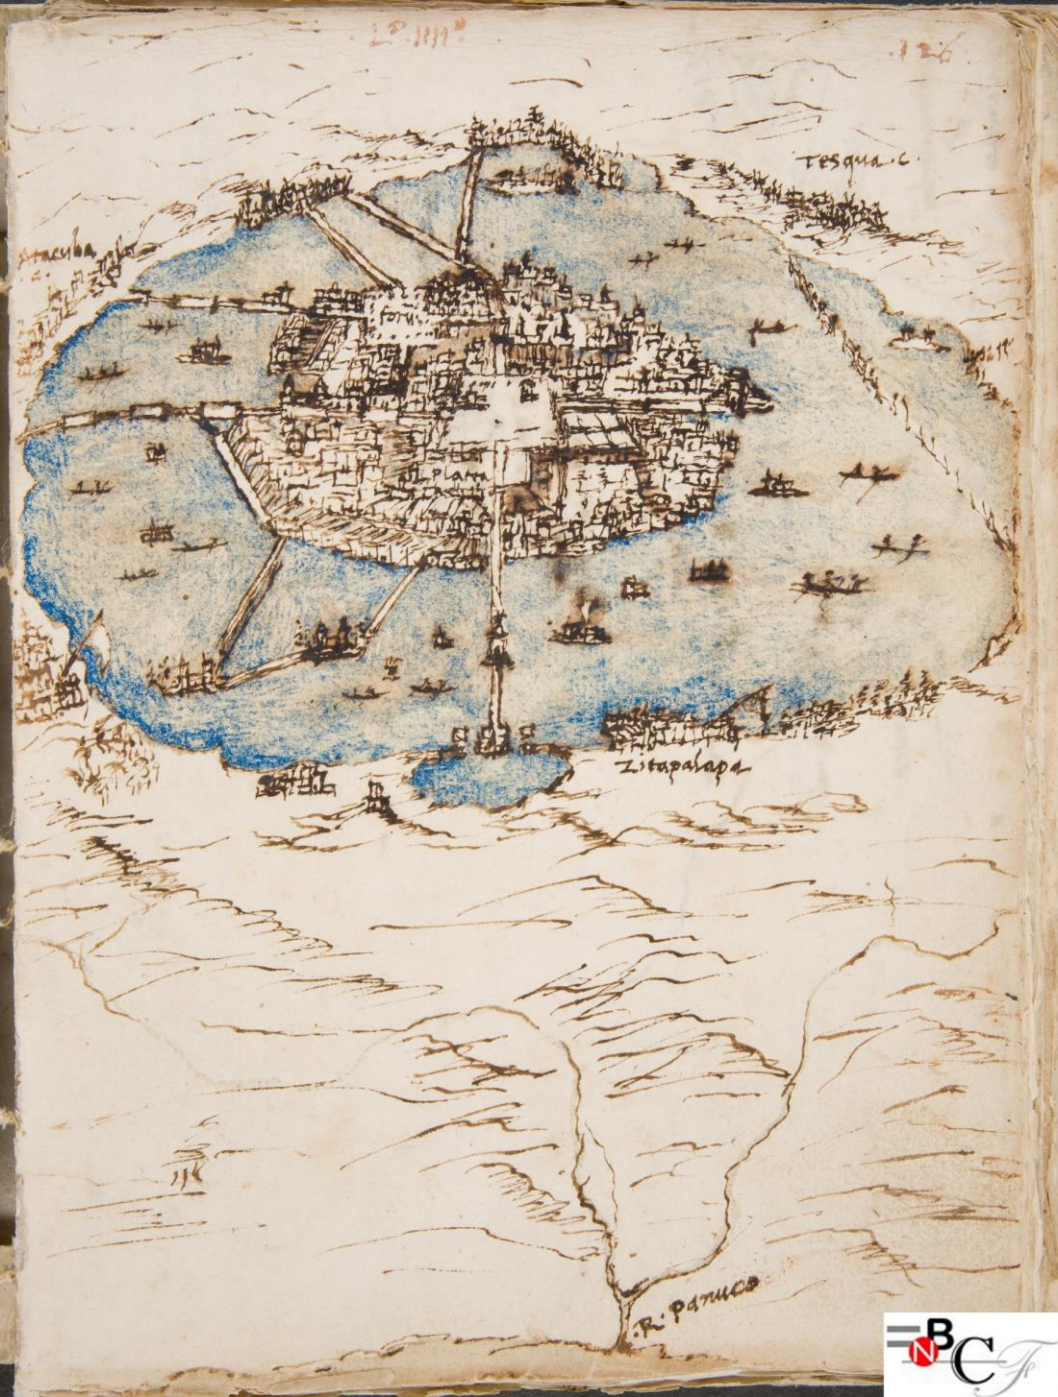 Lº. IIIIº
.126.
Tesqua.c.
Atacuba
foru
plaza
Zitapalapa
.R. Panuco
BNCF